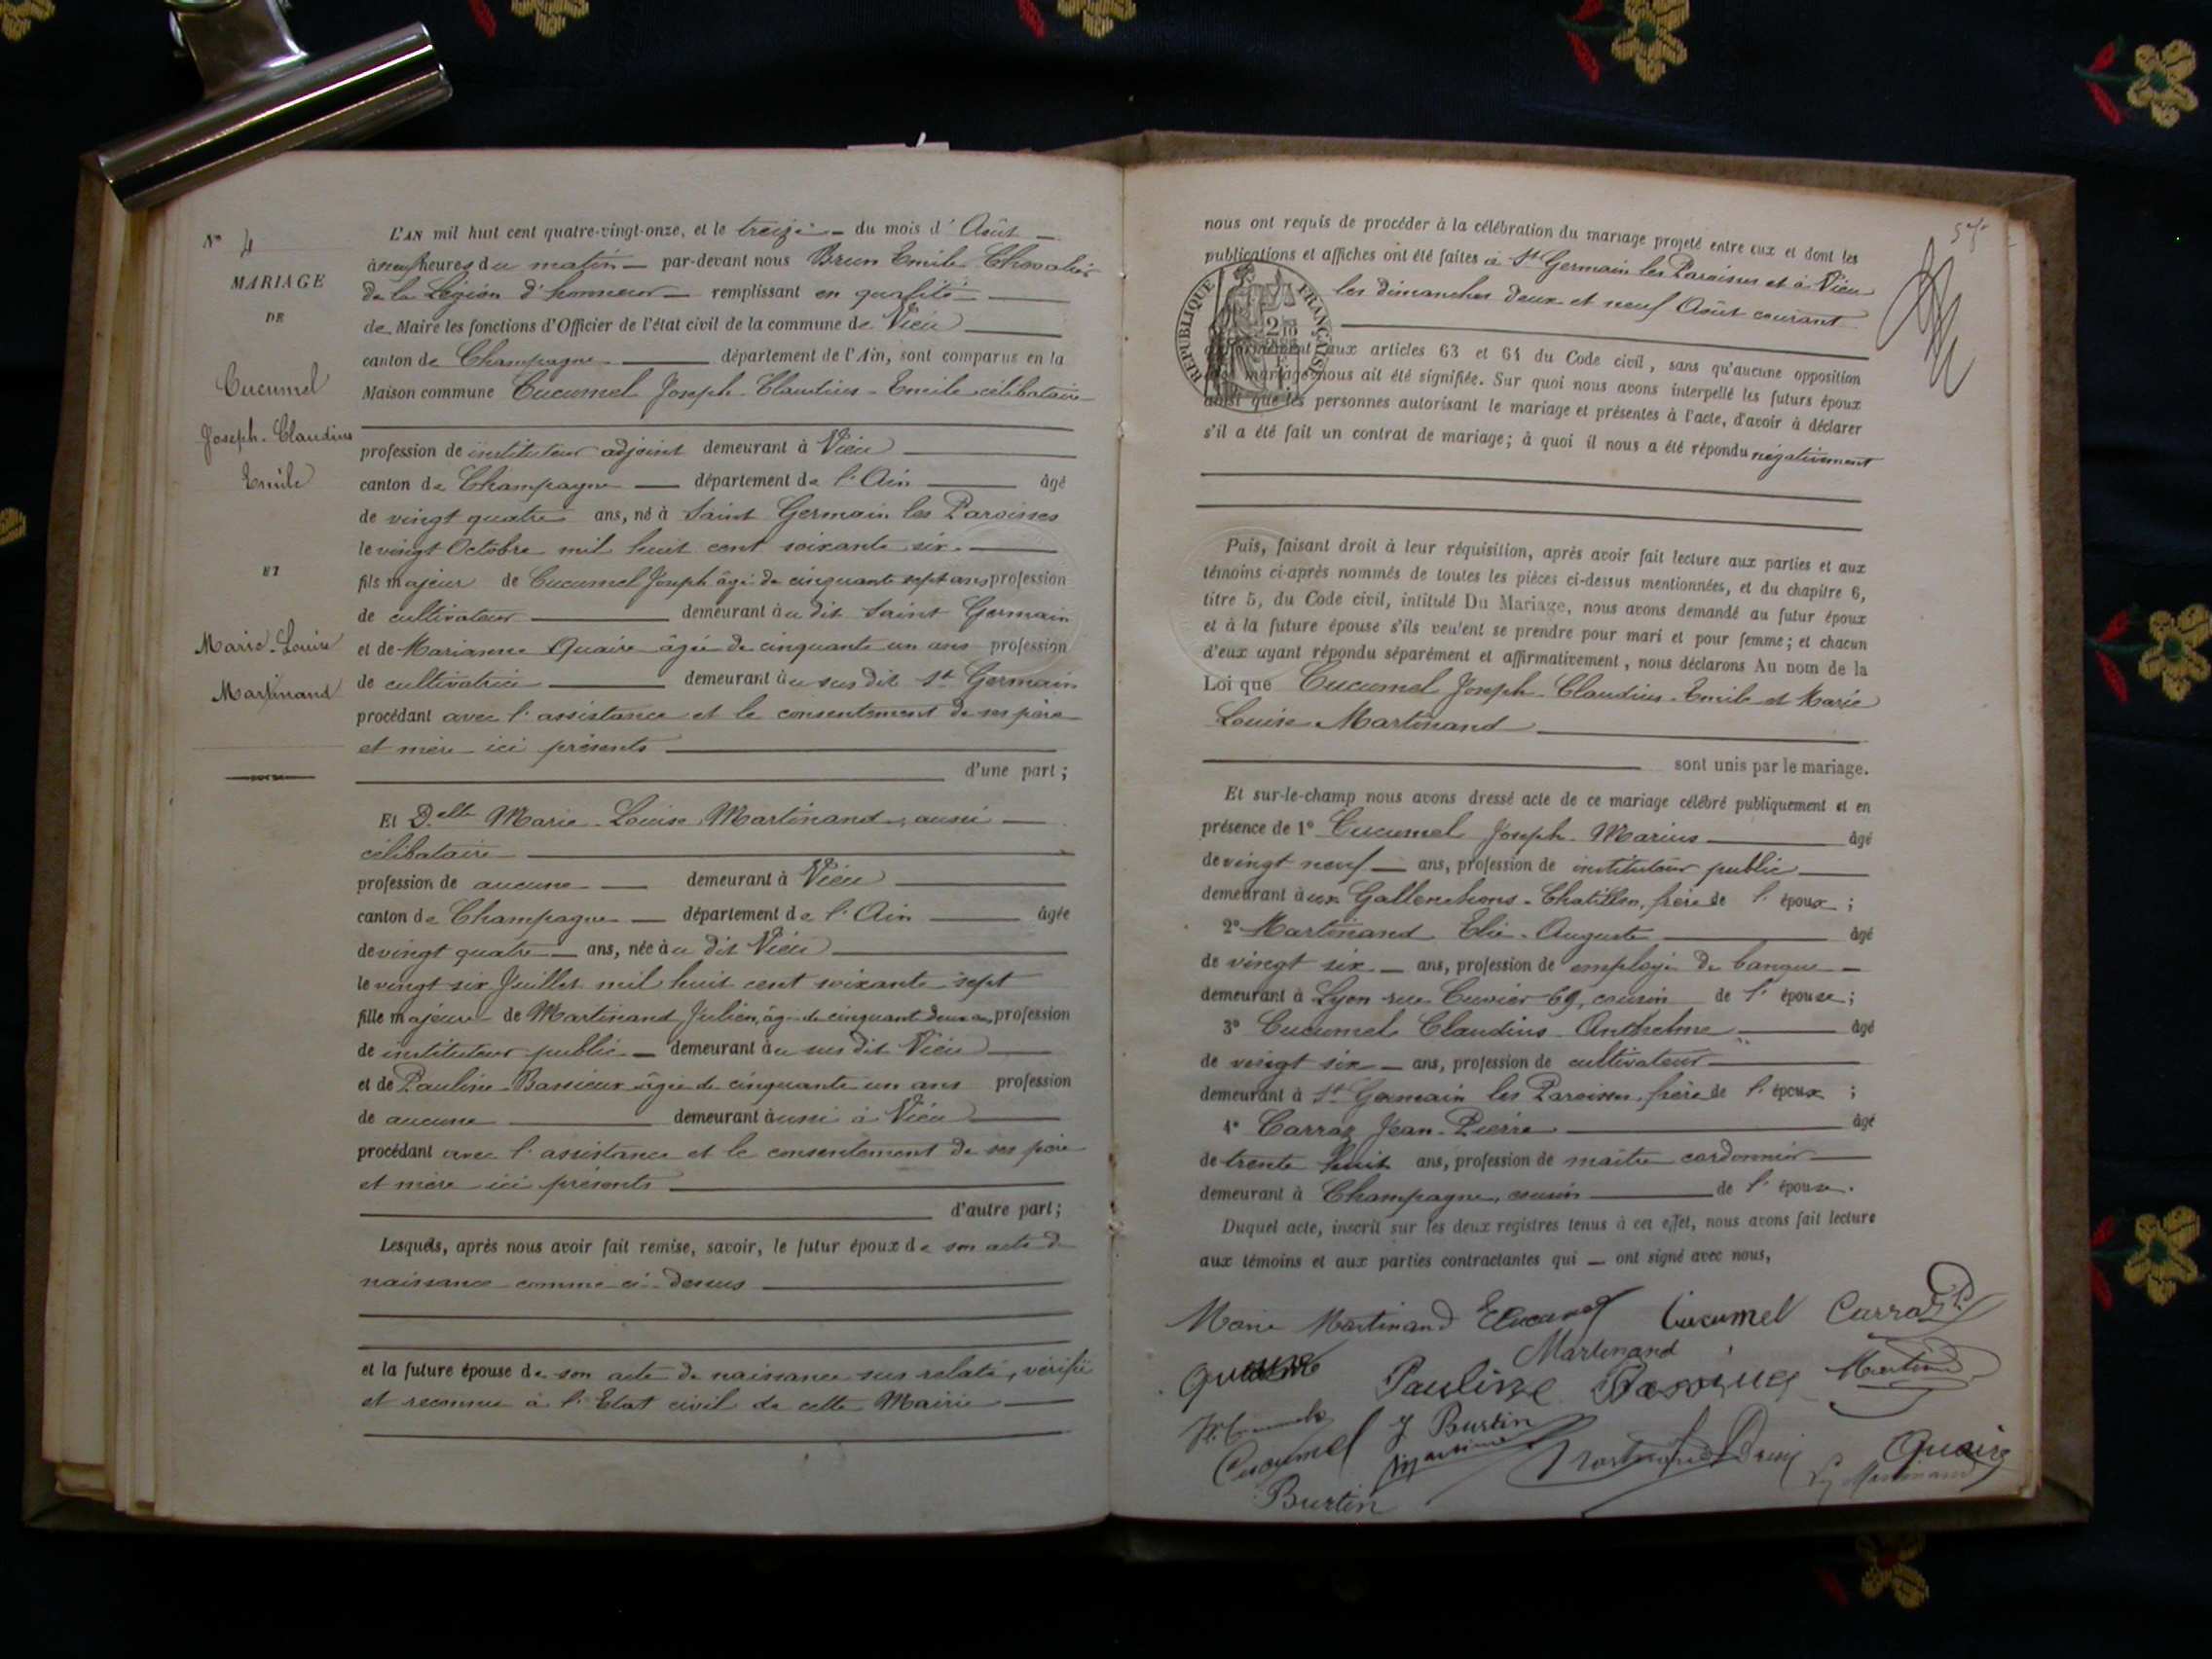 N° 4
MARIAGE
DE
Cucumel
Joseph-Claudius
Emile
ET
Marie-Louise
Martinand
L'AN mil huit cent quatre-vingt-onze, et le treize du mois d'Août
à neuf heures du matin par-devant nous Brun Emile Chevalier
de la Légion d'honneur remplissant en qualité
de Maire les fonctions d'Officier de l'état civil de la commune de Vieu
canton de Champagne département de l'Ain, sont comparus en la
Maison commune Cucumel Joseph-Claudius-Emile célibataire
profession de instituteur adjoint demeurant à Vieu
canton de Champagne département de l'Ain âgé
de vingt quatre ans, né à Saint Germain les Paroisses
le vingt Octobre mil huit cent soixante six
fils majeur de Cucumel Joseph âgé de cinquante sept ans profession
de cultivateur demeurant au dit Saint Germain
et de Marianne Quaire âgée de cinquante un ans profession
de cultivatrice demeurant au sus dit St Germain
procédant avec l'assistance et le consentement de ses père
et mère ici présents
d'une part;
Et Delle Marie-Louise Martinand, aussi
célibataire
profession de aucune demeurant à Vieu
canton de Champagne département de l'Ain âgée
de vingt quatre ans, née au dit Vieu
le vingt six Juillet mil huit cent soixante sept
fille majeure de Martinand Julien, âgé de cinquante deux ans, profession
de instituteur public demeurant au sus dit Vieu
et de Pauline Bassieux âgée de cinquante un ans profession
de aucune demeurant aussi à Vieu
procédant avec l'assistance et le consentement de ses père
et mère ici présents
d'autre part;
Lesquels, après nous avoir fait remise, savoir, le futur époux de son acte de
naissance comme ci-dessus
et la future épouse de son acte de naissance sus relaté, vérifié
et reconnu à l'Etat civil de cette Mairie
nous ont requis de procéder à la célébration du mariage projeté entre eux et dont les
publications et affiches ont été faites à St Germain les Paroisses et à Vieu
les dimanches deux et neuf Août courant
RÉPUBLIQUE FRANÇAISE
conformément aux articles 63 et 64 du Code civil, sans qu'aucune opposition
mariage nous ait été signifiée. Sur quoi nous avons interpellé les futurs époux
ainsi que les personnes autorisant le mariage et présentes à l'acte, d'avoir à déclarer
s'il a été fait un contrat de mariage; à quoi il nous a été répondu négativement
Puis, faisant droit à leur réquisition, après avoir fait lecture aux parties et aux
témoins ci-après nommés de toutes les pièces ci-dessus mentionnées, et du chapitre 6,
titre 5, du Code civil, intitulé Du Mariage, nous avons demandé au futur époux
et à la future épouse s'ils veulent se prendre pour mari et pour femme; et chacun
d'eux ayant répondu séparément et affirmativement, nous déclarons Au nom de la
Loi que Cucumel Joseph-Claudius-Emile et Marie
Louise Martinand
sont unis par le mariage.
Et sur-le-champ nous avons dressé acte de ce mariage célébré publiquement et en
présence de 1° Cucumel Joseph-Marius âgé
de vingt neuf ans, profession de instituteur public
demeurant aux Gallenchons-Chatillon, frère de l'époux;
2° Martinand Elie-Auguste âgé
de vingt six ans, profession de employé de banque
demeurant à Lyon rue Cuvier 69, cousin de l'épouse;
3° Cucumel Claudius Anthelme âgé
de vingt six ans, profession de cultivateur
demeurant à St Germain les Paroisses, frère de l'époux;
4° Carraz Jean-Pierre âgé
de trente huit ans, profession de maître cordonnier
demeurant à Champagne, cousin de l'épouse.
Duquel acte, inscrit sur les deux registres tenus à cet effet, nous avons fait lecture
aux témoins et aux parties contractantes qui ont signé avec nous,
Marie Martinand ECucumel Cucumel Carraz
Martinand
Pauline Martinand
Cucumel J Burtin
Quaire
Martinand
Burtin